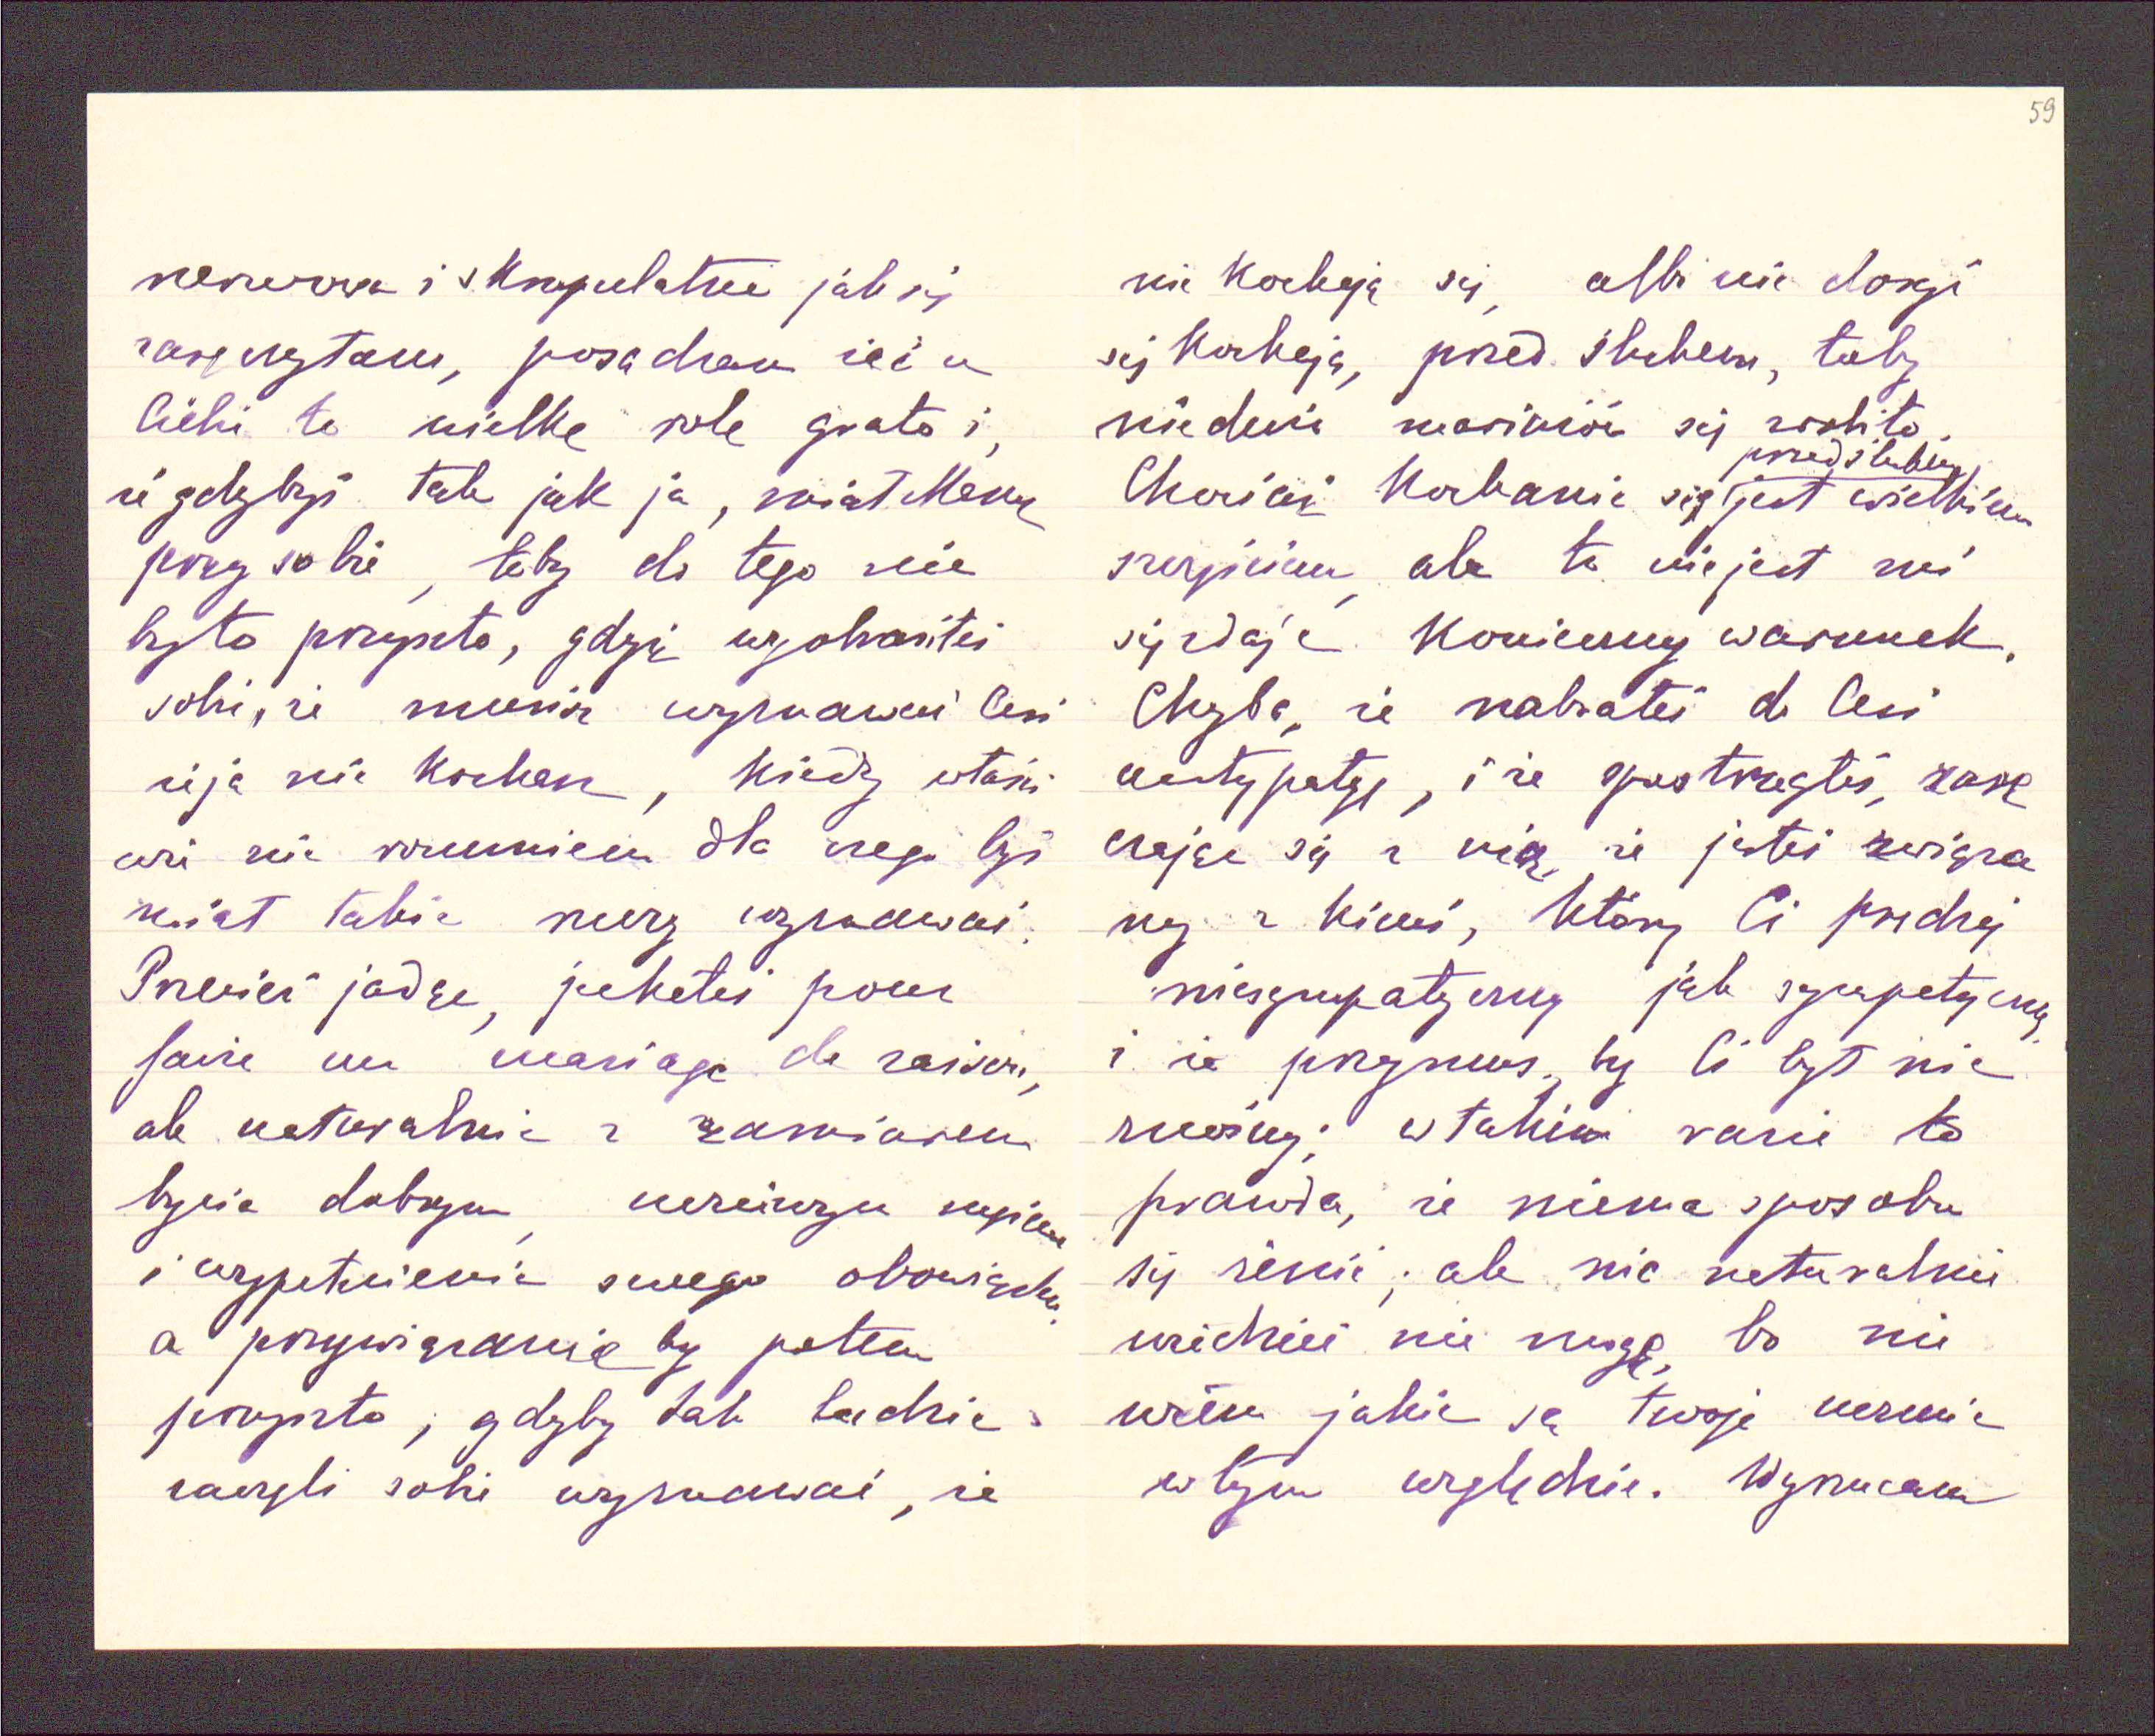 nerwowa i skrupulatna jak się
rozczytam, posądzam że i u
Ciebie to wielką rolę grało i,
że gdybyś tak jak ja, miał Mamę
przy sobie, toby do tego nie
było przyszło, gdyż wyobraziłeś
sobie, że musisz wyznawać Cesi
że ja nie kocham, kiedy właśi
wie nie rozumiem dla czego byś
miał takie rzeczy wyznawać.
Przecież jadąc, jechałeś pour
faire un mariage de raison,
ale naturalnie z zamiarem
bycia dobrym, uczciwym mężem
i wypełnienia swego obowiązku,
a przywiązanie by potem
przyszło; gdyby tak ludzie
zaczęli sobie wyznawać, że
59
nie kochają się, albo nie dosyć
się kochają, przed ślubem, toby
niedużo mariażów się zrobiło.
przed ślubem
Chociaż kochanie się jest wielkiem
szczęściem, ale to nie jest mi
się zdaje konieczny warunek.
Chyba, że nabrałeś do Cesi
antypatyę, i że spostrzegłeś, zarę
czając się z nią, że jesteś związa
ny z kimś, który Ci prędzej
niesympatyczny jak sympatyczny,
i że przymus by Ci był nie
znośny; w takim razie to
prawda, że niema sposobu
się żenić; ale nic naturalnie
wiedzieć nie mogę, bo nie
wiem jakie są twoje uczucia
w tym względzie. Wyrzucam